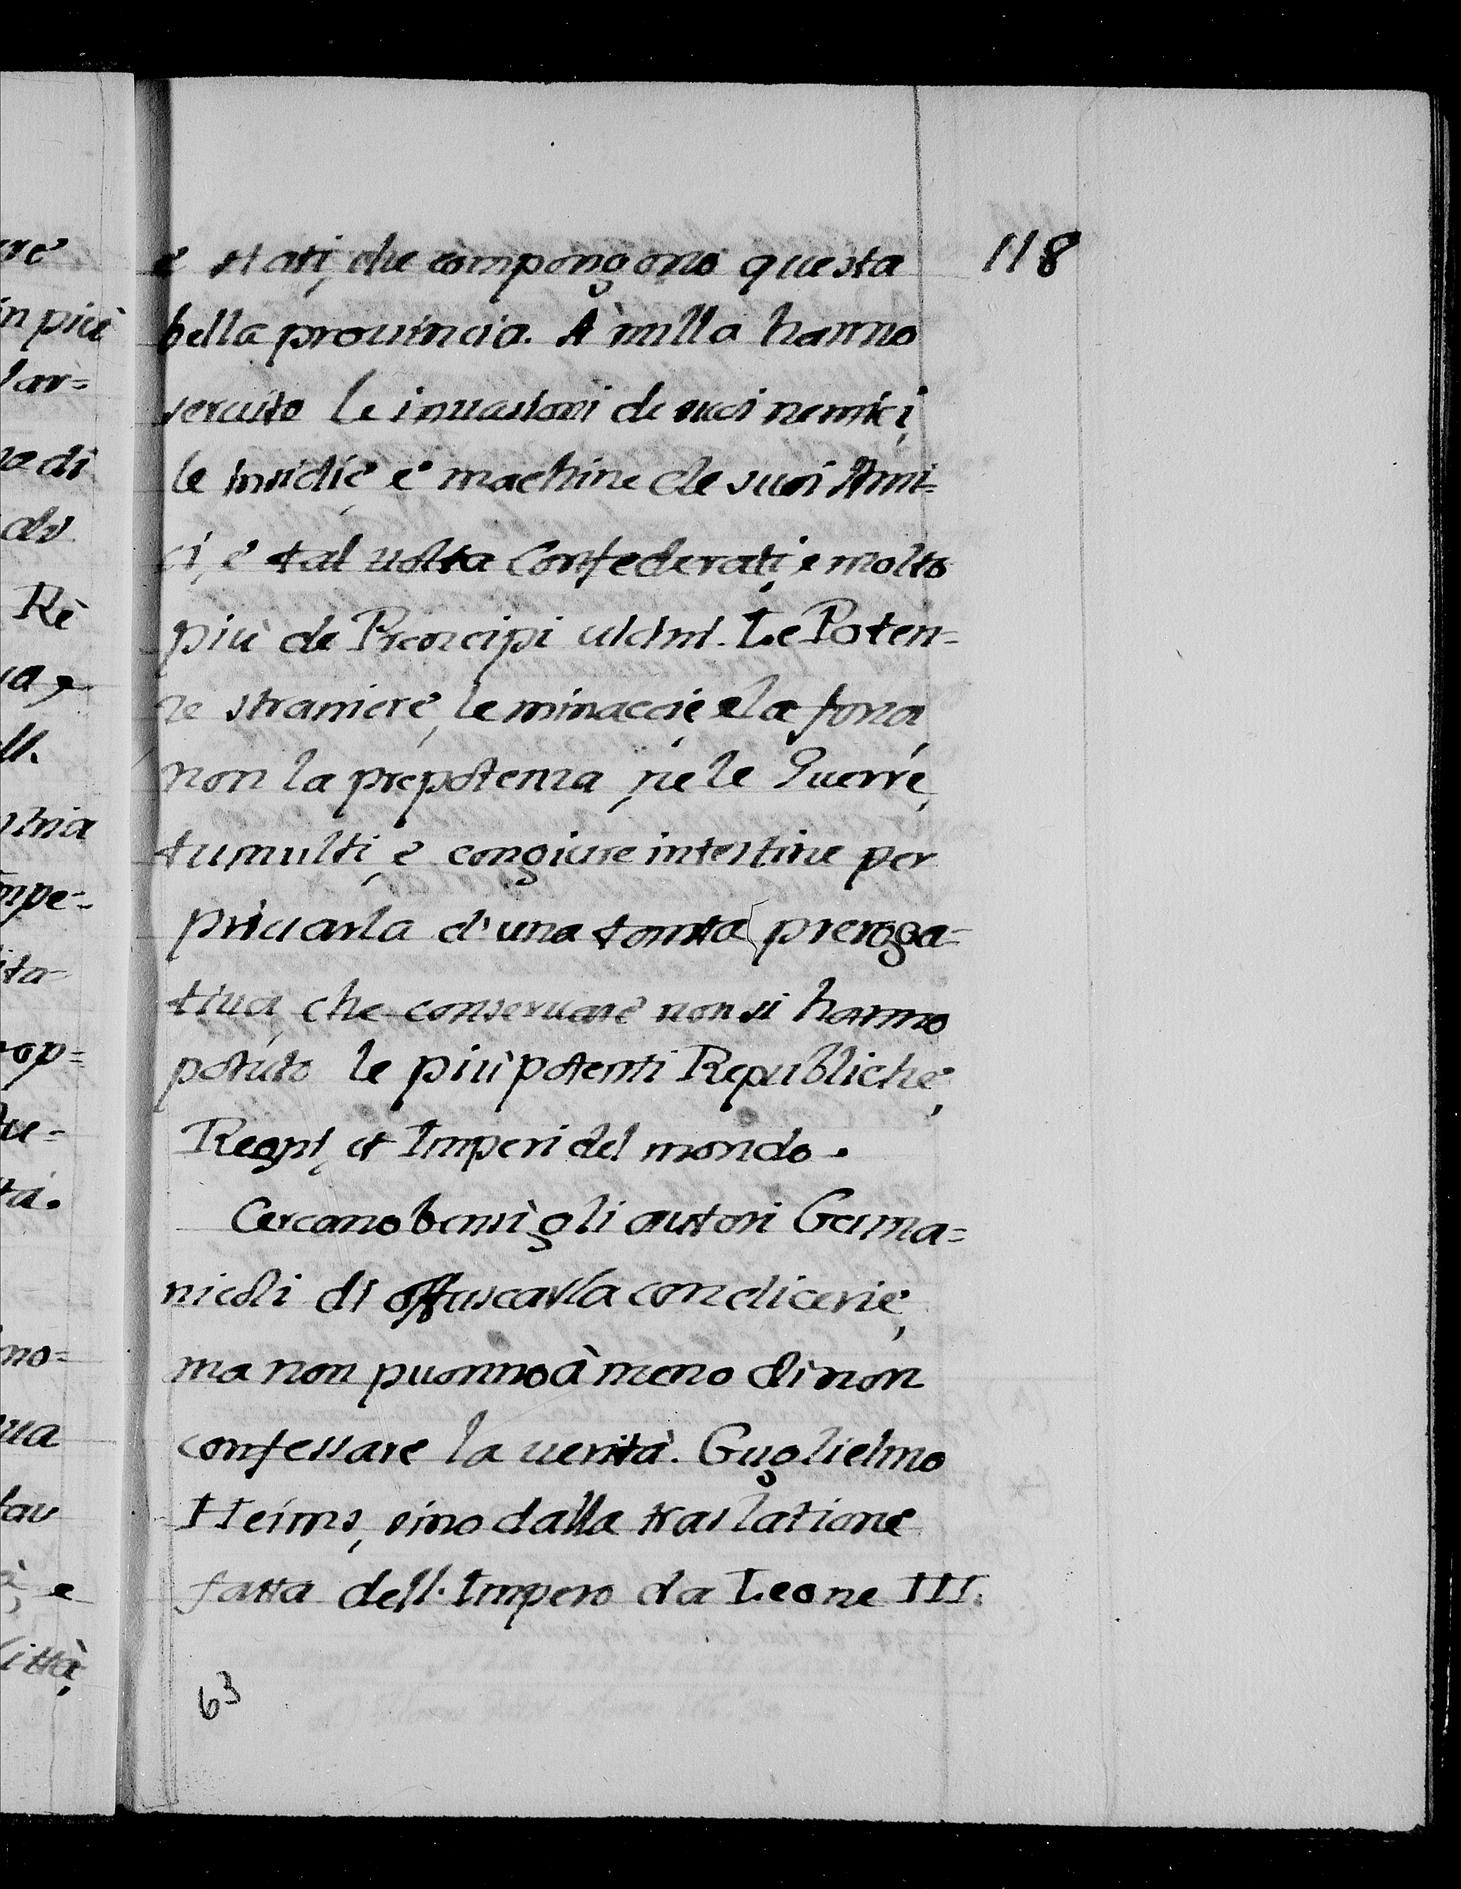 118
è stati, che compongono questa
bella prouincia. À nulla hanno
seruito le inuasioni de suoi nemici,
le insidie, e machine de suoi Ami=
ci, e tal uolta Confederati, e molto
più de Prencipi uicini. Le Poten=
ze straniere, le minaccie, e la forza,
non la prepotenza, ne le Guerre,
tumulti, e congiure intestine per
priuarla d'una tanta preroga=
tiua, che conseruare non si hanno
potuto le più potenti Republiche,
Regni, et Imperi del mondo.
Cercano bensì gli autori Germa=
nicoli di offuscarla con dicerie,
ma non puonno à meno di non
confessare la uerità. Guglielmo
Heims, sino dalla traslatione
fatta dell'Impero da Leone III.
63